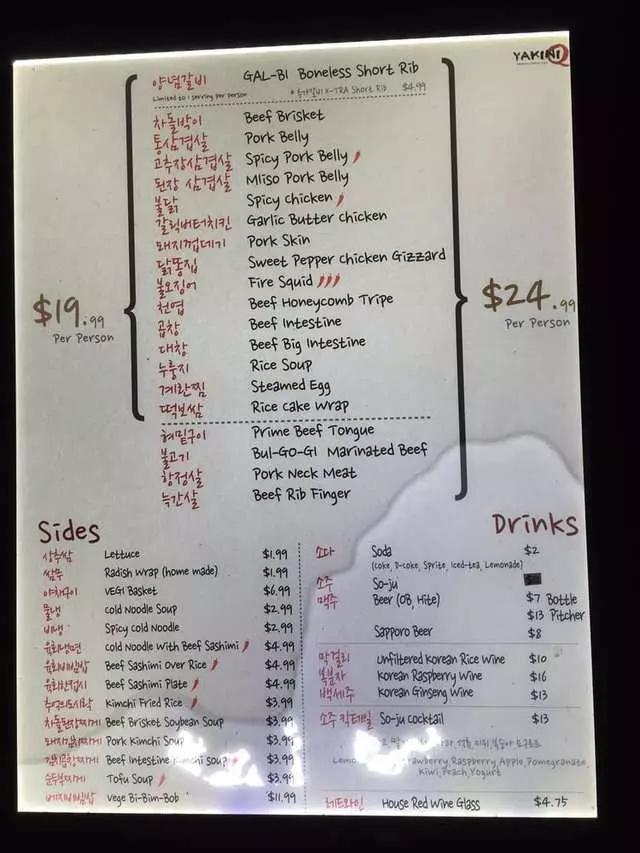 YAKINIQ
양념갈비 GAL-BI Boneless Short Rib
Limited to 1 serving per person X-TRA Short Rib $4.99
차돌박이 Beef Brisket
통삼겹살 Pork Belly
고추장삼겹살 Spicy Pork Belly
된장 삼겹살 Miso Pork Belly
불닭 Spicy chicken
갈릭버터치킨 Garlic Butter chicken
돼지껍데기 Pork Skin
닭똥집 Sweet Pepper chicken Gizzard
불오징어 Fire Squid
천엽 Beef Honeycomb Tripe
곱창 Beef Intestine
대창 Beef Big Intestine
누룽지 Rice Soup
계란찜 Steamed Egg
떡보쌈 Rice cake Wrap
$19.99
Per Person
$24.99
Per Person
혀밑구이 Prime Beef Tongue
불고기 BUL-GO-GI Marinated Beef
항정살 Pork Neck Meat
늑간살 Beef Rib Finger
Sides
상추쌈 Lettuce $1.99
쌈무 Radish Wrap (home made) $1.99
야채구이 VEGI Basket $6.99
물냉 cold Noodle Soup $2.99
비냉 Spicy cold Noodle $2.99
육회냉면 cold Noodle With Beef Sashimi $4.99
육회비빔밥 Beef Sashimi Over Rice $4.99
육회한접시 Beef Sashimi Plate $4.99
추억의도시락 Kimchi Fried Rice $3.99
차돌된장찌개 Beef Brisket Soybean Soup $3.99
돼지김치찌개 Pork Kimchi Soup $3.99
김치곱창찌개 Beef Intestine Kimchi Soup $3.99
순두부찌개 Tofu Soup $3.99
베지비빔밥 vege Bi-Bim-Bob $11.99
Drinks
소다 Soda $2
(coke, D-coke, Sprite, Iced-tea, Lemonade)
소주 So-ju
맥주 Beer (OB, Hite) $7 Bottle
$13 Pitcher
Sapporo Beer $8
막걸리 unfiltered Korean Rice Wine $10
복분자 Korean Raspberry Wine $16
백세주 Korean Ginseng Wine $13
소주 칵테일 So-ju cocktail $13
Raspberry, Apple, Pomegranate,
Kiwi, Peach, Yogurt
레드와인 House Red Wine Glass $4.75